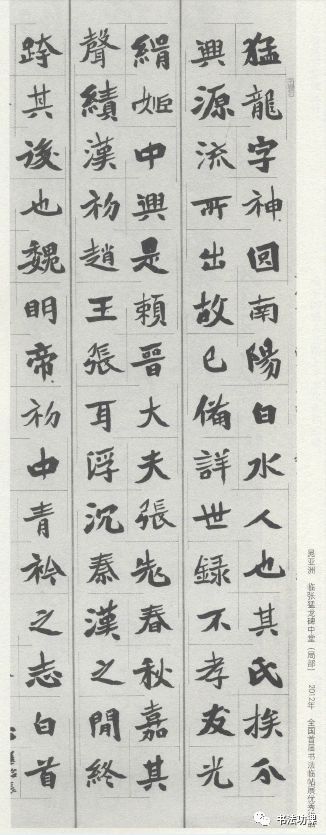 猛龍字神囧南陽白水人也其氏族分
興源流所出故已備詳世録不孝友光
緝姬中興是賴晉大夫張老春秋嘉其
聲績漢初趙王張耳浮沉秦漢之閒終
跨其後也魏明帝初中青衿之志白首
晁亚洲 临张猛龙碑中堂（局部） 2012年 全国首届书法临帖展优秀
书法功课